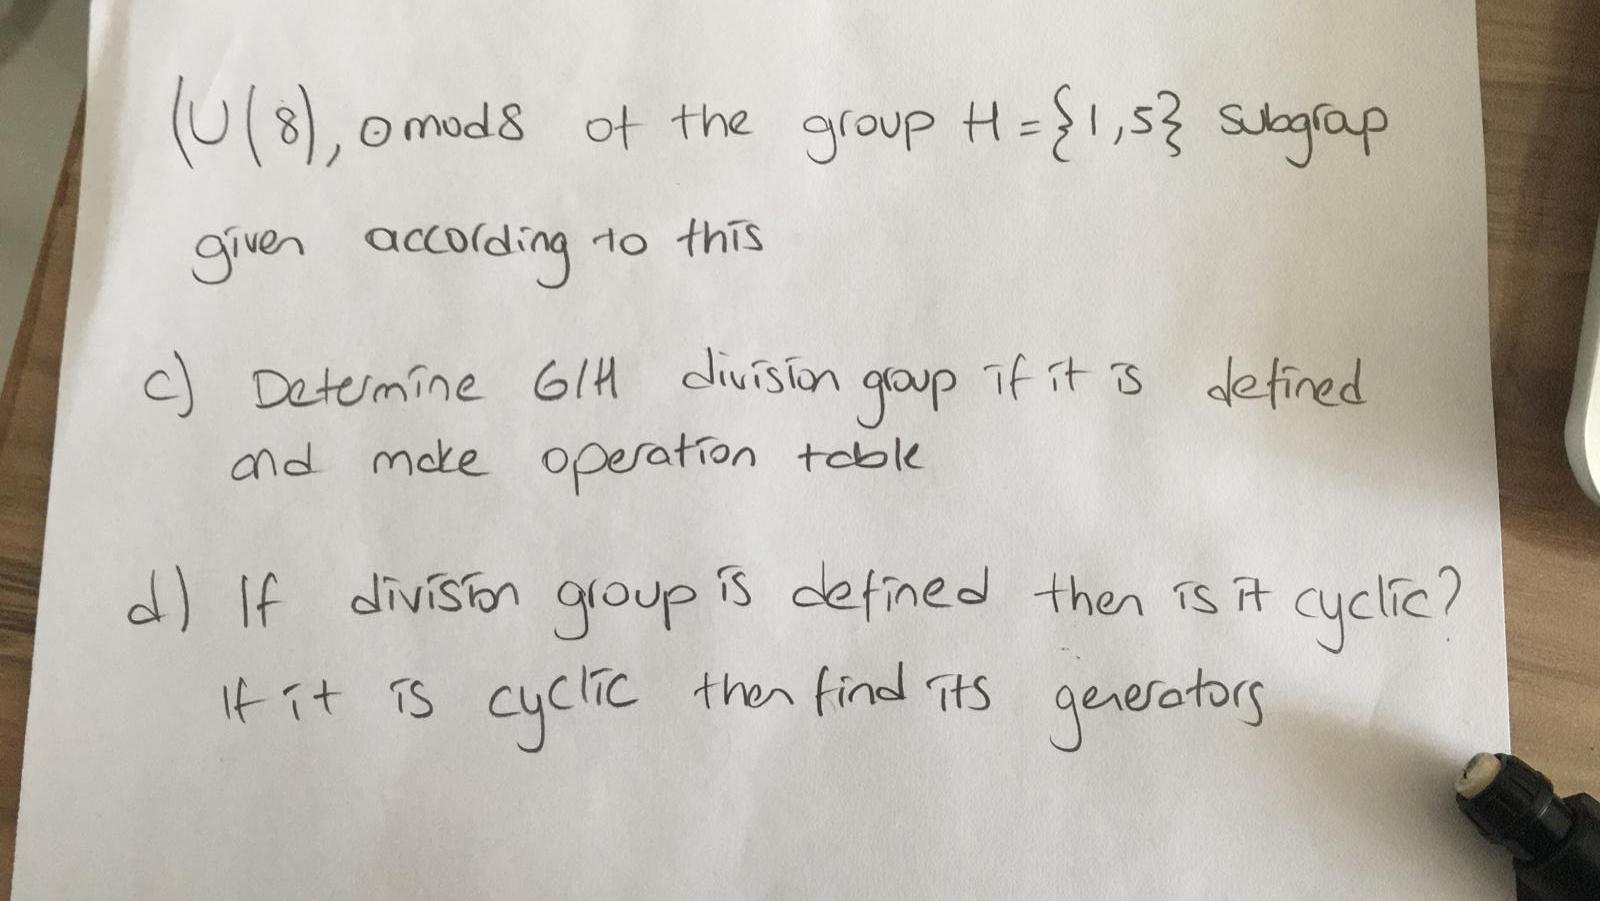 (U(8), ⊙mod8 of the group H={1,5} subgrap
given according to this
c) Determine G/H division group if it is defined
and make operation table
d) If division group is defined then is it cyclic?
If it is cyclic then find its generators